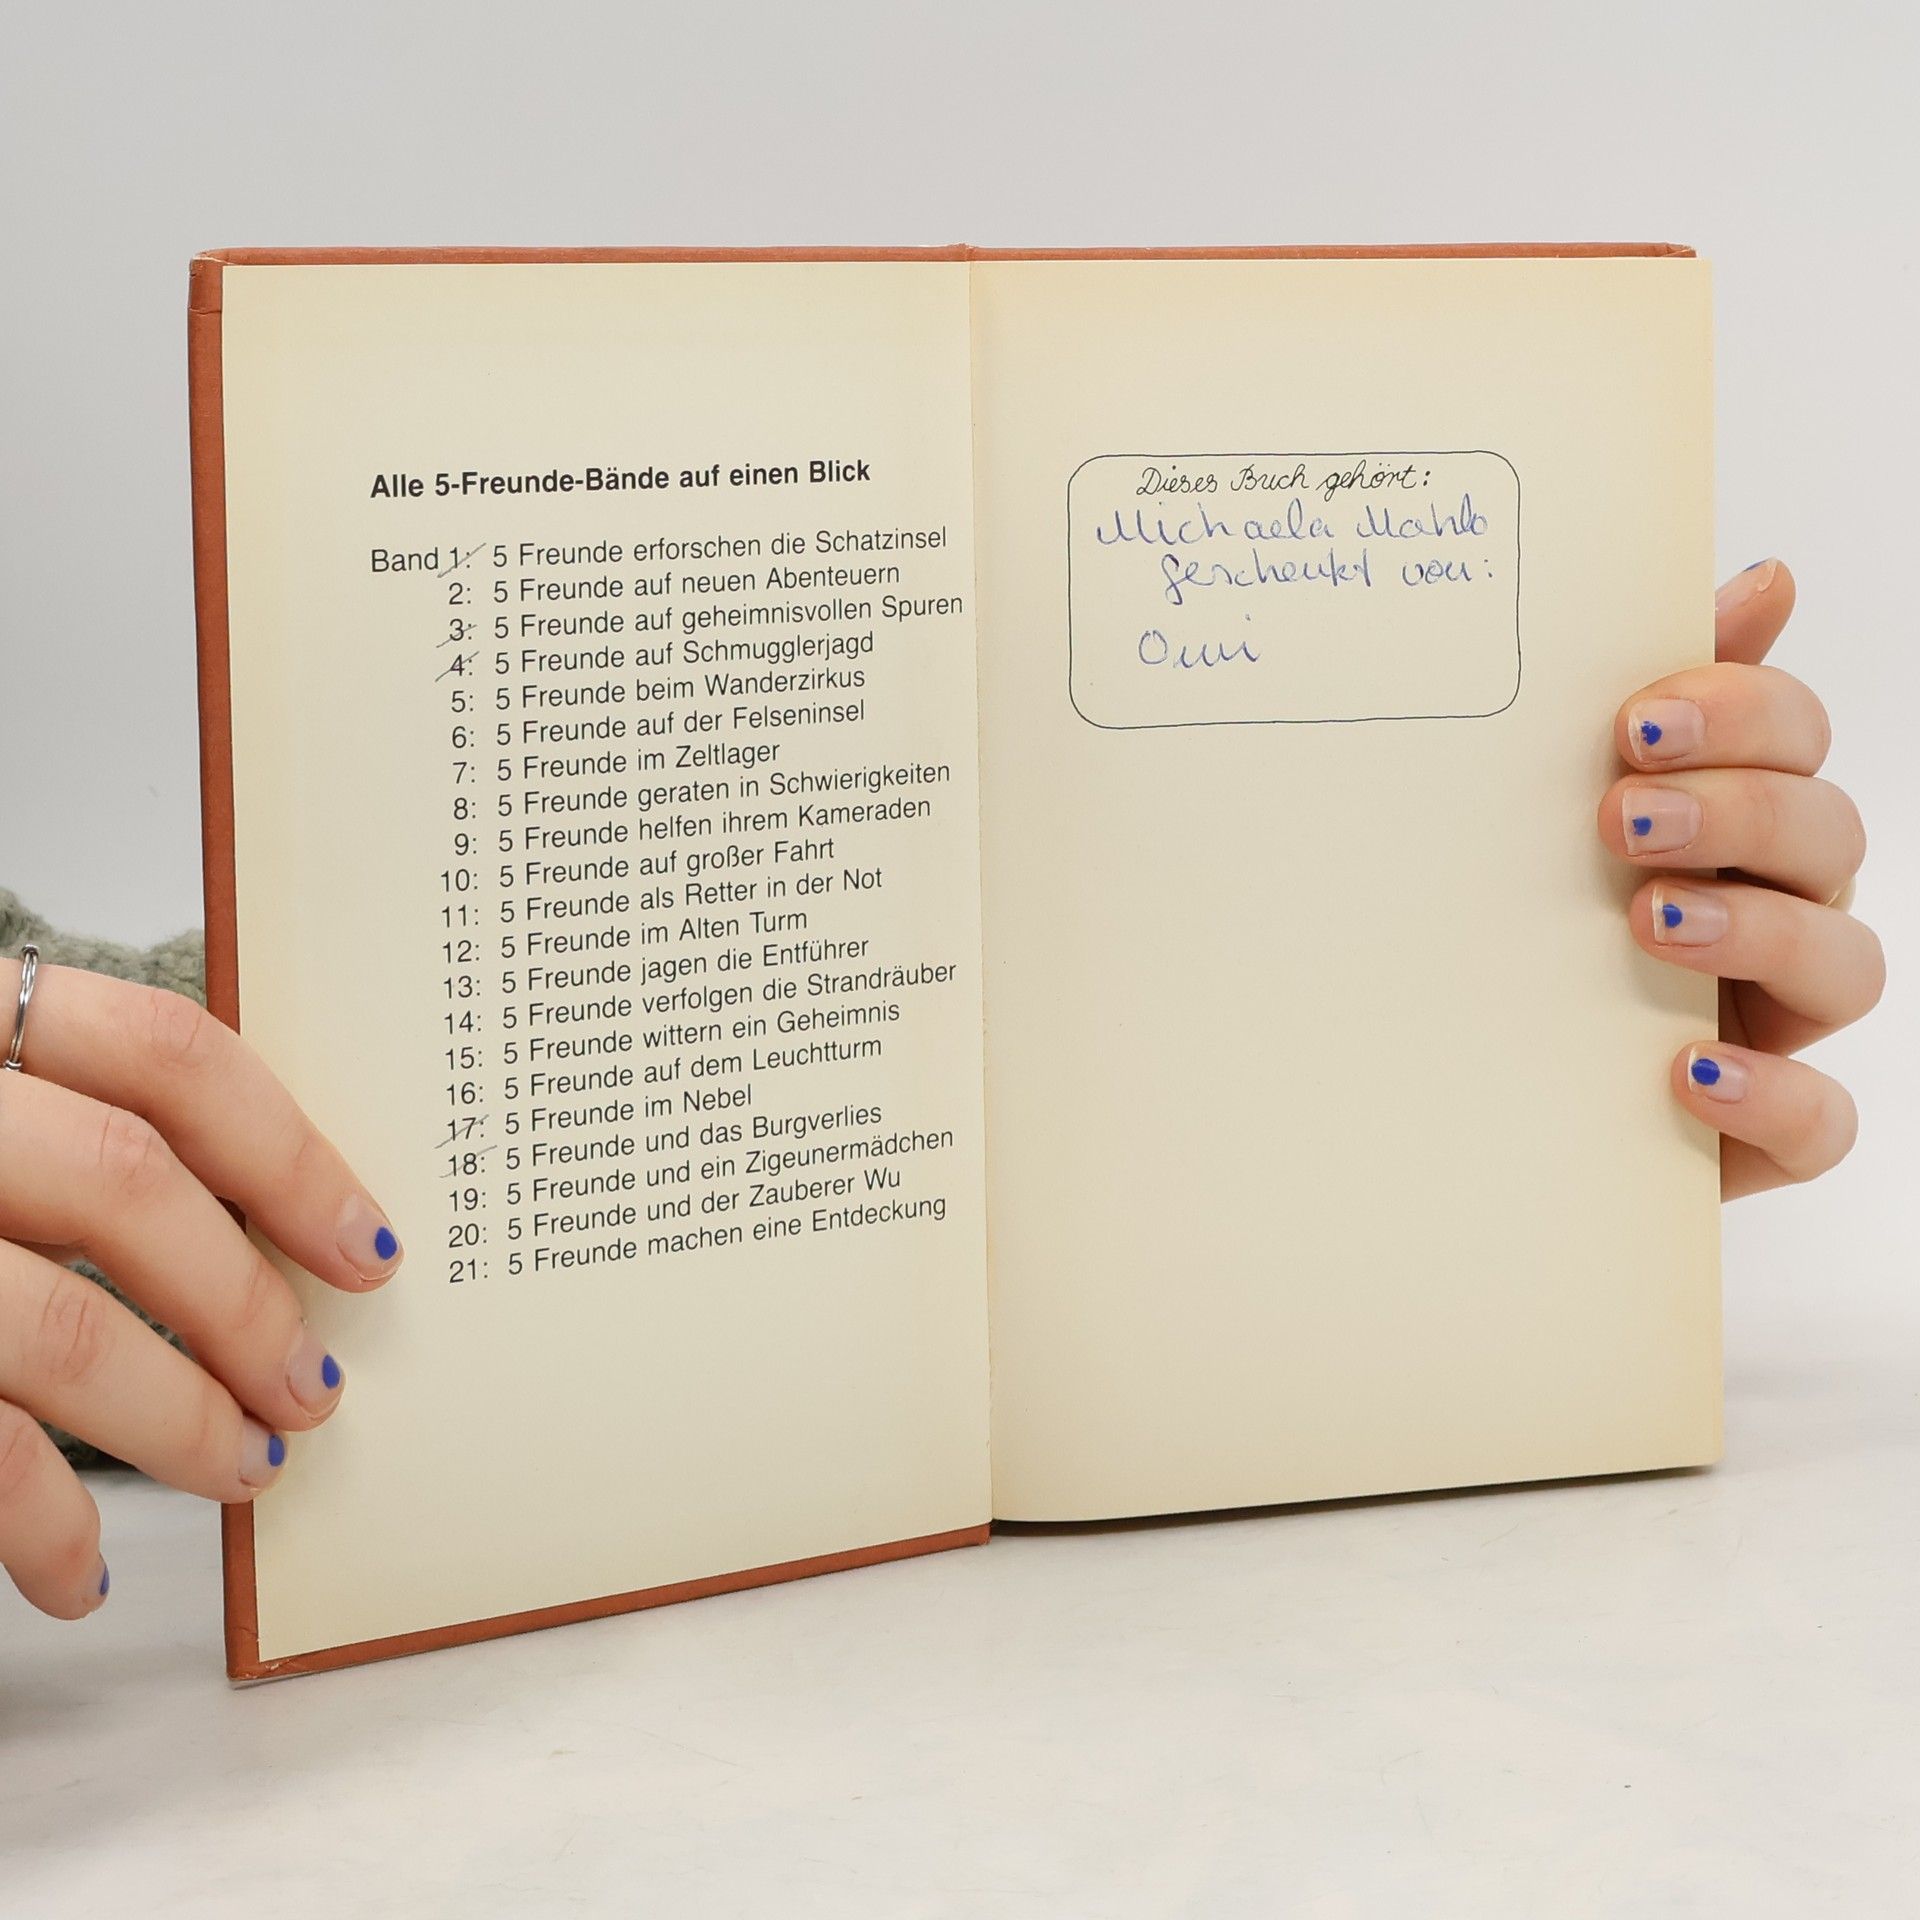 Alle 5-Freunde-Bände auf einen Blick
Band 1: 5 Freunde erforschen die Schatzinsel
2: 5 Freunde auf neuen Abenteuern
3: 5 Freunde auf geheimnisvollen Spuren
4: 5 Freunde auf Schmugglerjagd
5: 5 Freunde beim Wanderzirkus
6: 5 Freunde auf der Felseninsel
7: 5 Freunde im Zeltlager
8: 5 Freunde geraten in Schwierigkeiten
9: 5 Freunde helfen ihrem Kameraden
10: 5 Freunde auf großer Fahrt
11: 5 Freunde als Retter in der Not
12: 5 Freunde im Alten Turm
13: 5 Freunde jagen die Entführer
14: 5 Freunde verfolgen die Strandräuber
15: 5 Freunde wittern ein Geheimnis
16: 5 Freunde auf dem Leuchtturm
17: 5 Freunde im Nebel
18: 5 Freunde und das Burgverlies
19: 5 Freunde und ein Zigeunermädchen
20: 5 Freunde und der Zauberer Wu
21: 5 Freunde machen eine Entdeckung
Dieses Buch gehört:
Michaela
geschenkt von:
Omi